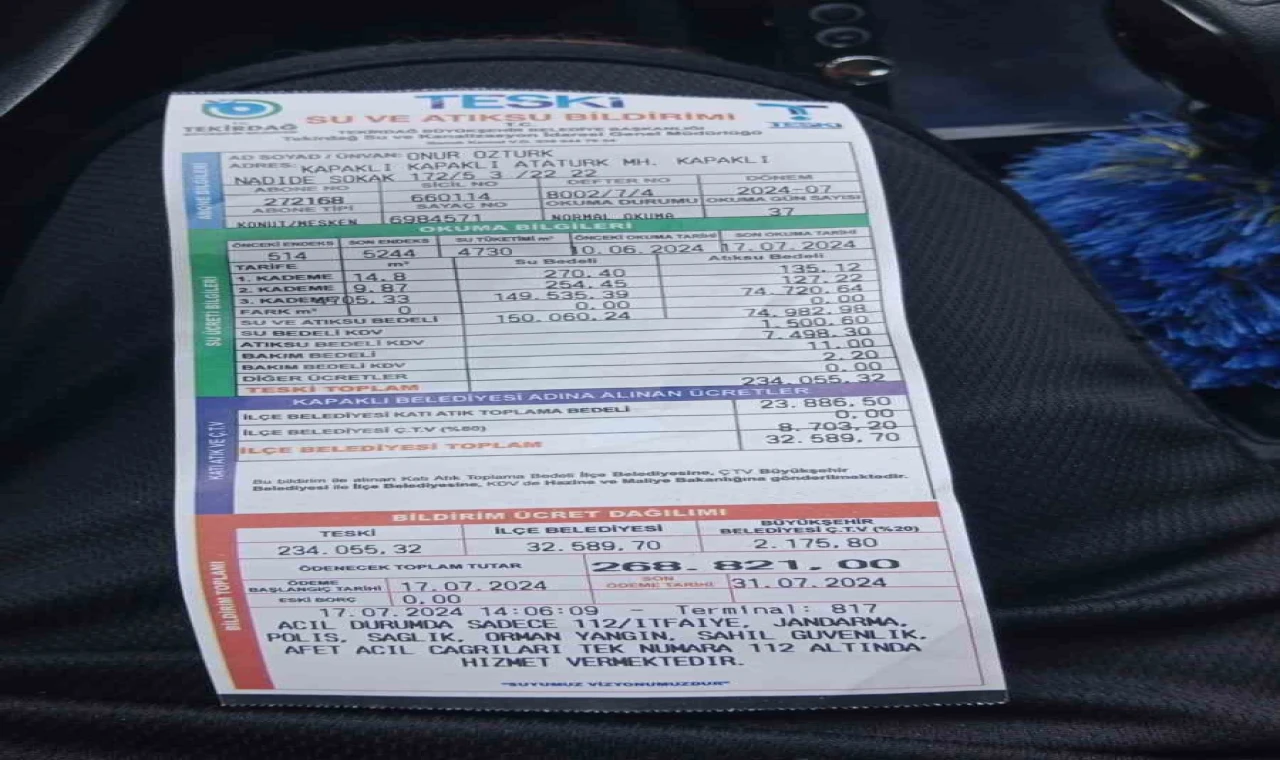 TESKİ
SU VE ATIKSU BİLDİRİMİ
T.C.
TEKİRDAĞ BÜYÜKŞEHİR BELEDİYE BAŞKANLIĞI
Tekirdağ Su ve Kanalizasyon İdaresi Genel Müdürlüğü
TEKİRDAĞ
TESKİ
ABONE BİLGİLERİ
AD SOYAD / ÜNVAN: ONUR OZTURK
ADRES: KAPAKLI KAPAKLI ATATURK MH. KAPAKLI
NADIDE SOKAK 172/5 3 /22 22
ABONE NO SİCİL NO DEFTER NO DÖNEM
272168 660114 8002/7/4 2024-07
ABONE TİPİ SAYAÇ NO OKUMA DURUMU OKUMA GÜN SAYISI
KONUT/MESKEN 6984571 NORMAL OKUMA 37
OKUMA BİLGİLERİ
SU ÜCRETİ BİLGİLERİ
ÖNCEKİ ENDEKS SON ENDEKS SU TÜKETİMİ m³ ÖNCEKİ OKUMA TARİHİ SON OKUMA TARİHİ
514 5244 4730 10.06.2024 17.07.2024
TARİFE m³ Su Bedeli Atıksu Bedeli
1. KADEME 14.8 270.40 135.12
2. KADEME 9.87 254.45 127.22
3. KADEME 4705.33 149.535.39 74.720.64
FARK m³ 0 0.00 0.00
SU VE ATIKSU BEDELİ 150.060.24 74.982.98
SU BEDELİ KDV 1.500.60
ATIKSU BEDELİ KDV 7.498.30
BAKIM BEDELİ 11.00
BAKIM BEDELİ KDV 2.20
DİĞER ÜCRETLER 0.00
TESKİ TOPLAM 234.055.32
KAPAKLI BELEDİYESİ ADINA ALINAN ÜCRETLER
KATI ATIK VE Ç.T.V
İLÇE BELEDİYESİ KATI ATIK TOPLAMA BEDELİ 23.886.50
0.00
İLÇE BELEDİYESİ Ç.T.V (%80) 8.703.20
İLÇE BELEDİYESİ TOPLAM 32.589.70
Bu bildirim ile alınan Katı Atık Toplama Bedeli İlçe Belediyesine, ÇTV Büyükşehir
Belediyesi ile İlçe Belediyesine, KDV de Hazine ve Maliye Bakanlığına gönderilmektedir.
BİLDİRİM ÜCRET DAĞILIMI
BİLDİRİM TOPLAMI
TESKİ İLÇE BELEDİYESİ BÜYÜKŞEHİR
BELEDİYESİ Ç.T.V (%20)
234.055.32 32.589.70 2.175.80
ÖDENECEK TOPLAM TUTAR 268.821.00
ÖDEME
BAŞLANGIÇ TARİHİ 17.07.2024 SON
ÖDEME TARİHİ 31.07.2024
ESKİ BORÇ 0.00
17.07.2024 14:06:09 - Terminal: 817
ACIL DURUMDA SADECE 112/ITFAIYE, JANDARMA,
POLIS, SAGLIK, ORMAN YANGIN, SAHIL GUVENLIK,
AFET ACIL CAGRILARI TEK NUMARA 112 ALTINDA
HIZMET VERMEKTEDIR.
"SUYUMUZ VİZYONUMUZDUR"